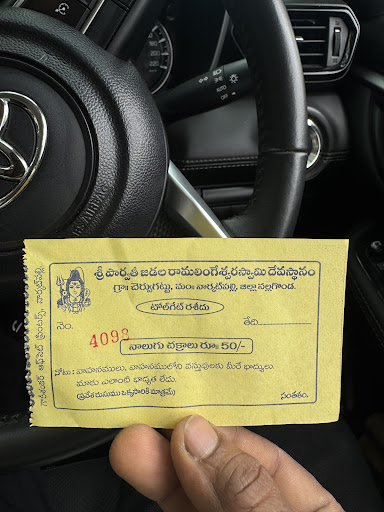 శ్రీ పార్వతీ జడల రామలింగేశ్వరస్వామి దేవస్థానం
గ్రా: చెర్వుగట్టు, మం: నార్కట్‌పల్లి, జిల్లా నల్లగొండ.
టోల్‌గేట్ రశీదు
నెం. 4098 తేది
నాలుగు చక్రాలు రూ॥ 50/-
నోటు : వాహనములు, వాహనములోని వస్తువులకు మీరే బాధ్యులు
మాకు ఎలాంటి బాధ్యత లేదు.
(ప్రవేశ రుసుము ఒక్కసారికి మాత్రమే) సంతకం.
AIRBAG
AUTO
OFF